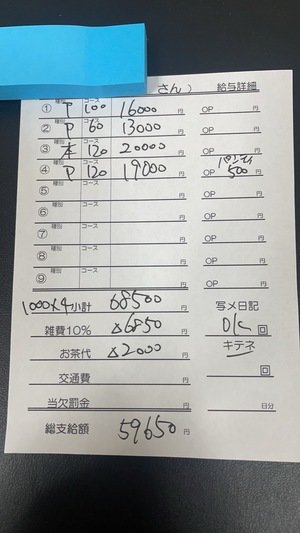 さん） 給与詳細
① 種別 P コース 100 16000円 OP 円
② 種別 P コース 60 13000円 OP 円
③ 種別 本 コース 120 20000円 OP 円
④ 種別 P コース 120 19000円 OP パンティ 500円
⑤ 種別 コース 円 OP 円
⑥ 種別 コース 円 OP 円
⑦ 種別 コース 円 OP 円
⑧ 種別 コース 円 OP 円
⑨ 種別 コース 円 OP 円
1000×4 小計 68500円 写メ日記
雑費10% △6850円 OK 回
お茶代 △2000円 キテネ
交通費 円 回
当欠罰金 円 日分
総支給額 59650円